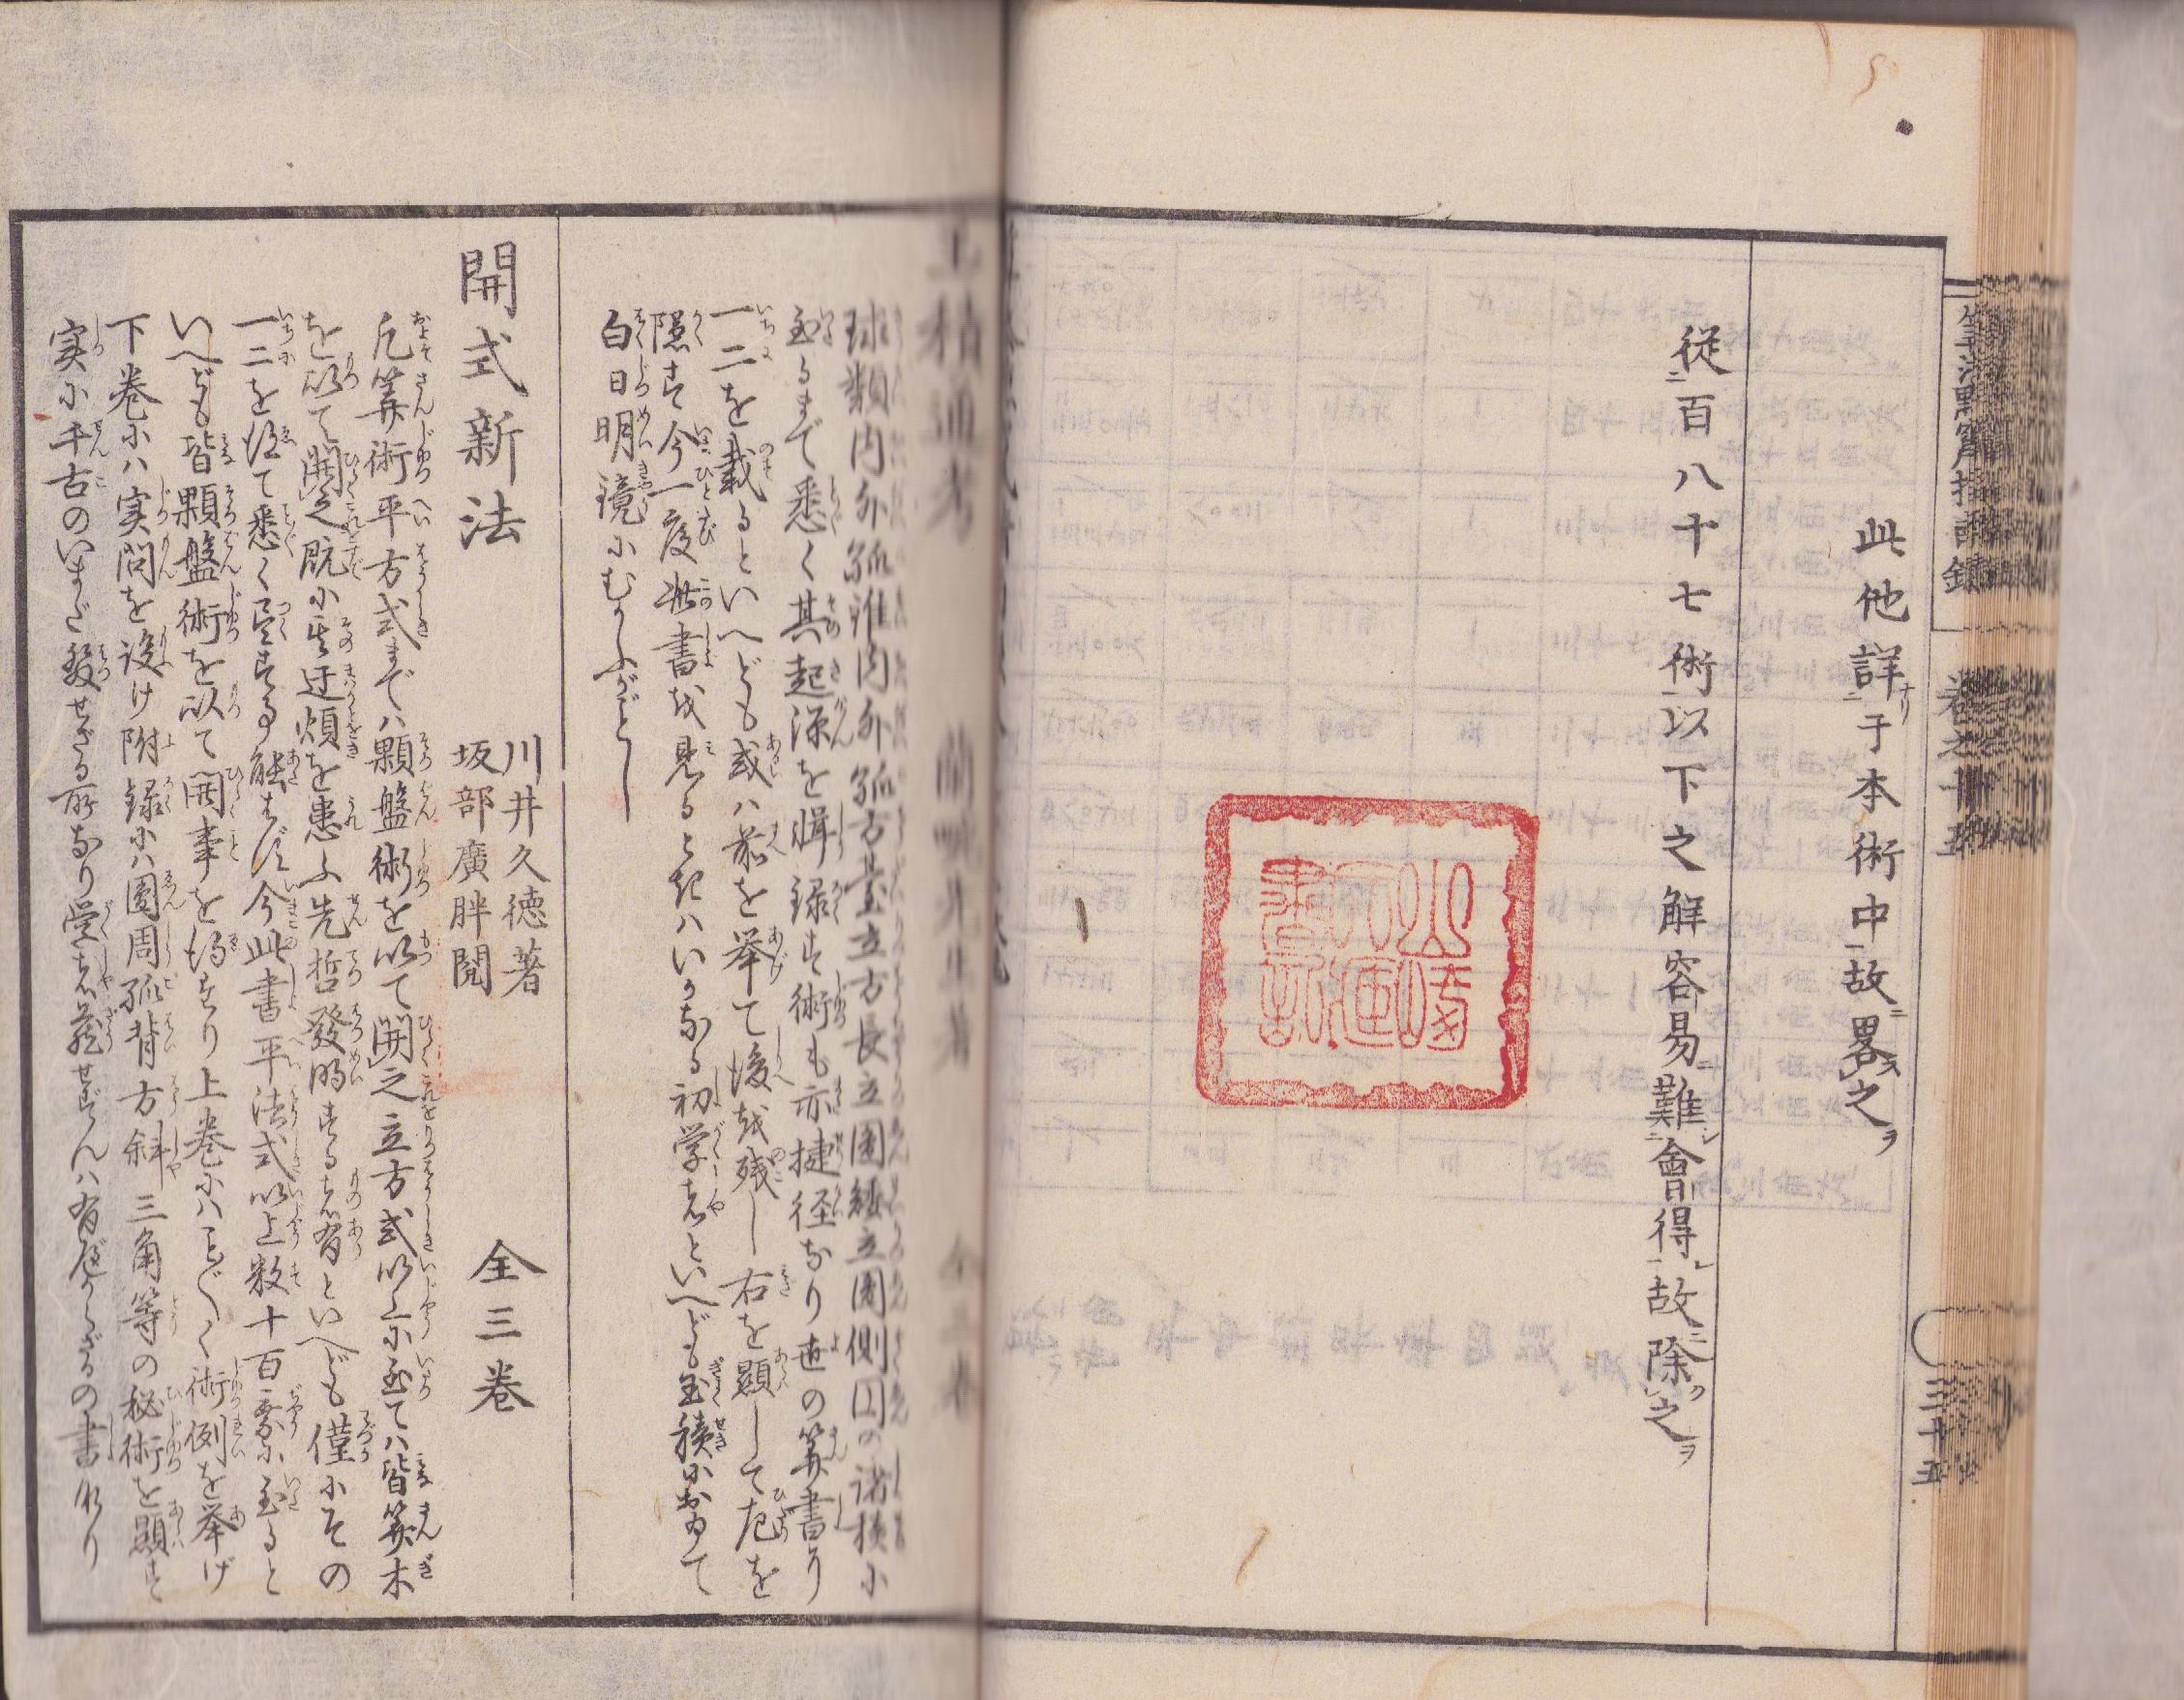 此他詳ナリ二于本術中一故ニ畧ス之ヲ
従二百八十七術一以下之解容易ニ難シ二會得シ一故ニ除ク之ヲ
算法點竄指南録
卷之十五
三十五
球類内外弧錐内外弧方臺立方長立圓
至るまで悉く其起源を輯録す術も亦捷径なり世の算書
一二を載るといへども或ハ前を挙て後を残し右を顕して左を
隠す今一度此書を見るときハいかなる初学者といへども至積におゐて
白日明鏡にむかふがごとし
開式新法
川井久徳著
坂部廣胖閲
全三巻
凡算術平方式までハ顆盤術を以て開之立方式以上に至てハ皆算木
を以て開之既に其迂煩を患ふ先哲發明する者有といへども僅にその
一二を得て悉く尽する能はず今此書平法式以上数十百乗に至ると
いへども皆顆盤術を以て開事を得たり上巻にハことごとく術例を挙げ
下巻にハ実問を設け附録にハ圓周弧背方斜三角等の秘術を顕す
実に千古のいまだ發せざる所なり学者蔵せずんハ有べからざるの書なり